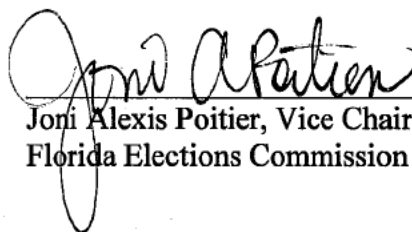 Joni A Poitier
Joni Alexis Poitier, Vice Chair
Florida Elections Commission